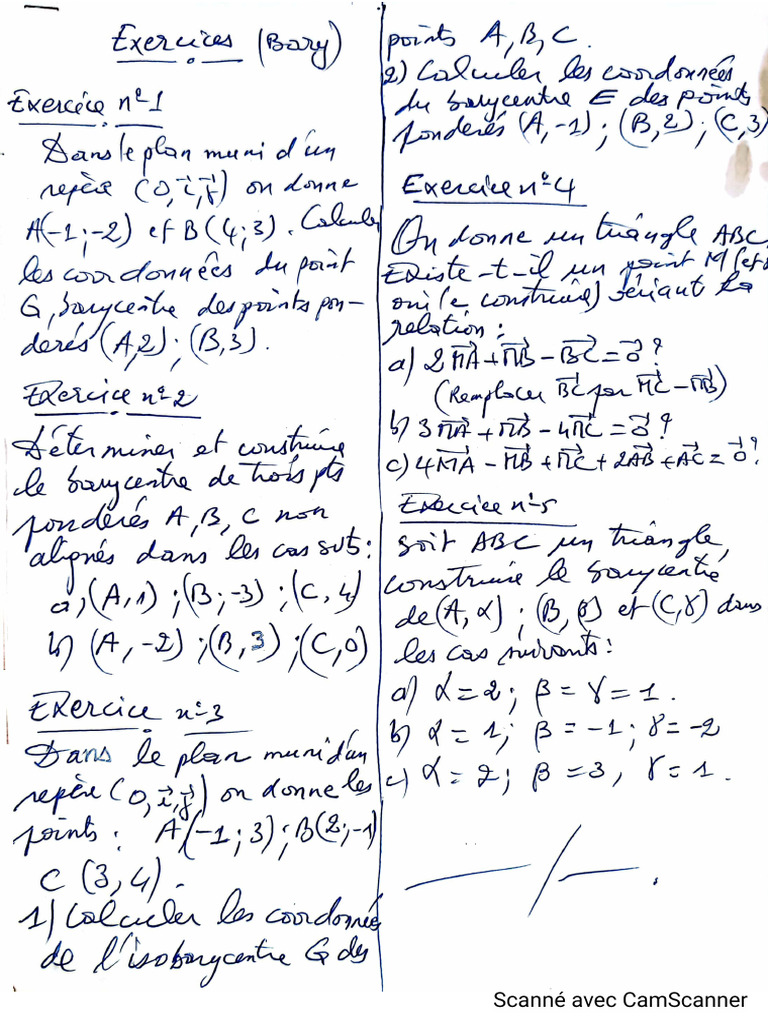 Exercices (Bary)
Exercice n°1
Dans le plan muni d'un
repère (O, i⃗, j⃗) on donne
A(-1; -2) et B(4; 3). Calculer
les coordonnées du point
G, barycentre des points pon-
derés (A,2); (B,3).
Exercice n°2
Déterminer et construire
le barycentre de trois pts
pondérés A, B, C non
alignés dans les cas svts:
a) (A,1); (B;-3); (C,4)
b) (A,-2); (B,3); (C,0)
Exercice n°3
Dans le plan muni d'un
repère (O, i⃗, j⃗) on donne les
points: A(-1; 3); B(2; -1)
C (3,4).
1) Calculer les coordonnées
de l'isobarycentre G des
points A, B, C.
2) Calculer les coordonnées
du barycentre E des points
ponderés (A,-1); (B,2); (C,3)
Exercice n°4
On donne un triangle ABC.
Existe-t-il un point M (et
oui le construire) vériant la
relation:
a) 2M⃗A⃗ + M⃗B⃗ - B⃗C⃗ = 0⃗ ?
(Remplacer B⃗C⃗ par M⃗C⃗ - M⃗B⃗)
b) 3M⃗A⃗ + M⃗B⃗ - 4M⃗C⃗ = 0⃗ ?
c) 4M⃗A⃗ - M⃗B⃗ + M⃗C⃗ + 2A⃗B⃗ + A⃗C⃗ = 0⃗ ?
Exercice n°5
Soit ABC un triangle,
construire le barycentre
de (A, α); (B, β) et (C, γ) dans
les cas suivants:
a) α = 2; β = γ = 1.
b) α = 1; β = -1; γ = -2
c) α = 2; β = 3, γ = 1.
Scanné avec CamScanner